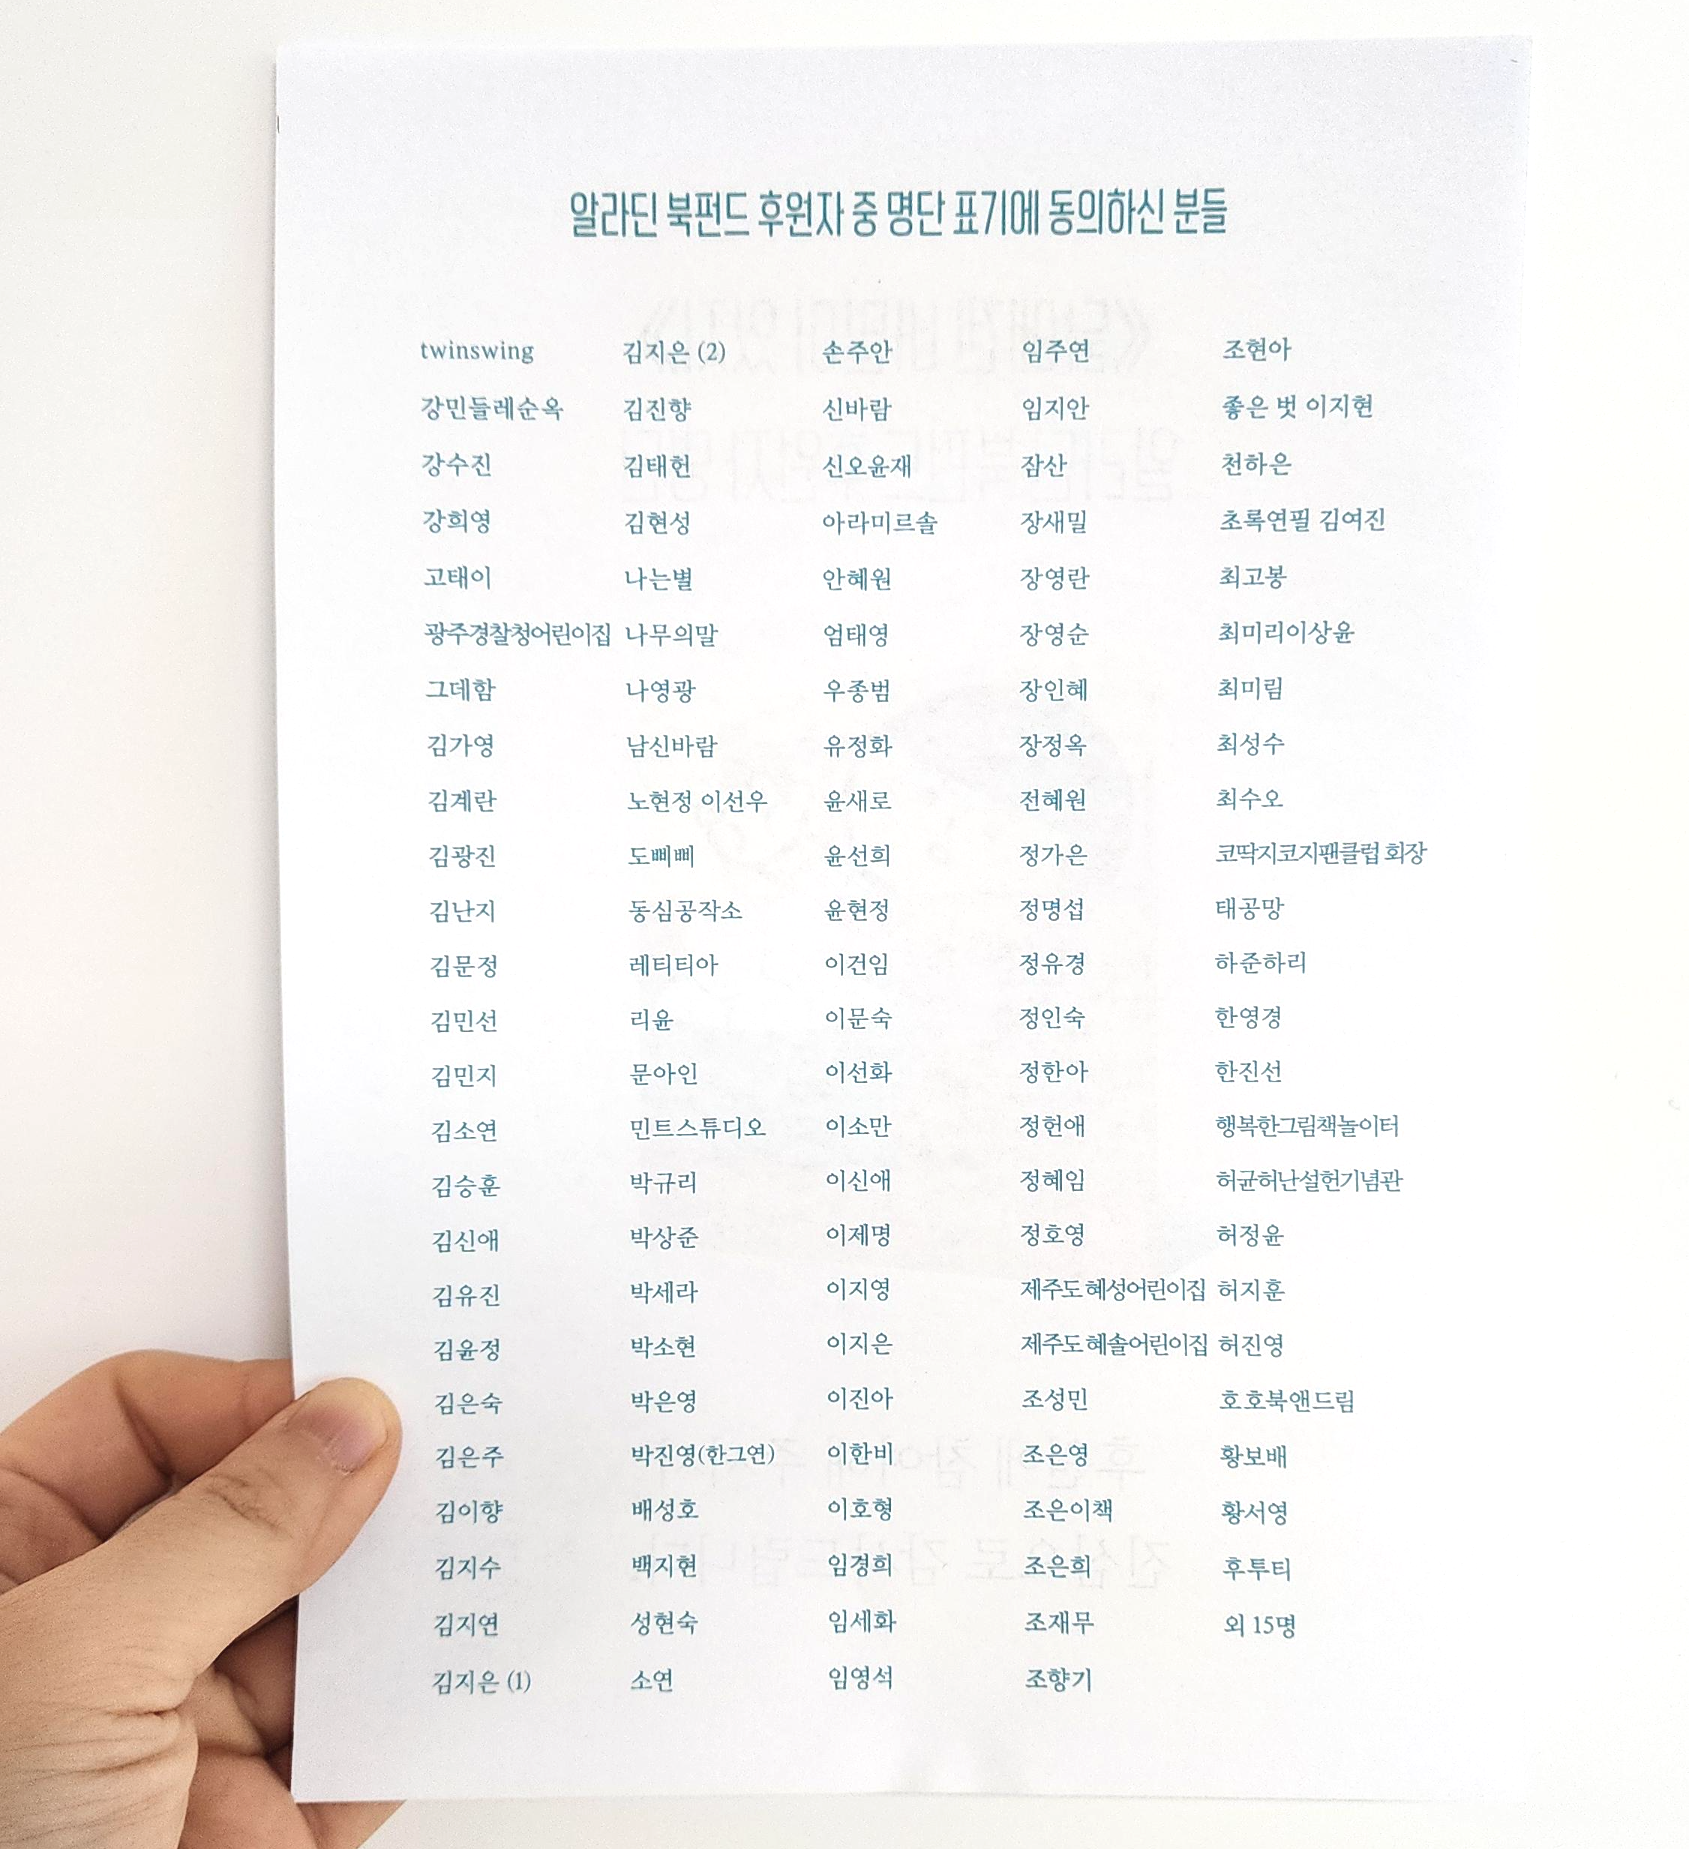 알라딘 북펀드 후원자 중 명단 표기에 동의하신 분들
twinswing
강민들레순옥
강수진
강희영
고태이
광주경찰청어린이집
그데함
김가영
김계란
김광진
김난지
김문정
김민선
김민지
김소연
김승훈
김신애
김유진
김윤정
김은숙
김은주
김이향
김지수
김지연
김지은 (1)
김지은 (2)
김진향
김태헌
김현성
나는별
나무의말
나영광
남신바람
노현정 이선우
도삐삐
동심공작소
레티티아
리윤
문아인
민트스튜디오
박규리
박상준
박세라
박소현
박은영
박진영(한그연)
배성호
백지현
성현숙
소연
손주안
신바람
신오윤재
아라미르솔
안혜원
엄태영
우종범
유정화
윤새로
윤선희
윤현정
이건임
이문숙
이선화
이소만
이신애
이제명
이지영
이지은
이진아
이한비
이호형
임경희
임세화
임영석
임주연
임지안
잠산
장새밀
장영란
장영순
장인혜
장정옥
전혜원
정가은
정명섭
정유경
정인숙
정한아
정헌애
정혜임
정호영
제주도 혜성어린이집
제주도 혜솔어린이집
조성민
조은영
조은이책
조은희
조재무
조향기
조현아
좋은 벗 이지현
천하은
초록연필 김여진
최고봉
최미리이상윤
최미림
최성수
최수오
코딱지코지팬클럽 회장
태공망
하준하리
한영경
한진선
행복한그림책놀이터
허균허난설헌기념관
허정윤
허지훈
허진영
호호북앤드림
황보배
황서영
후투티
외 15명